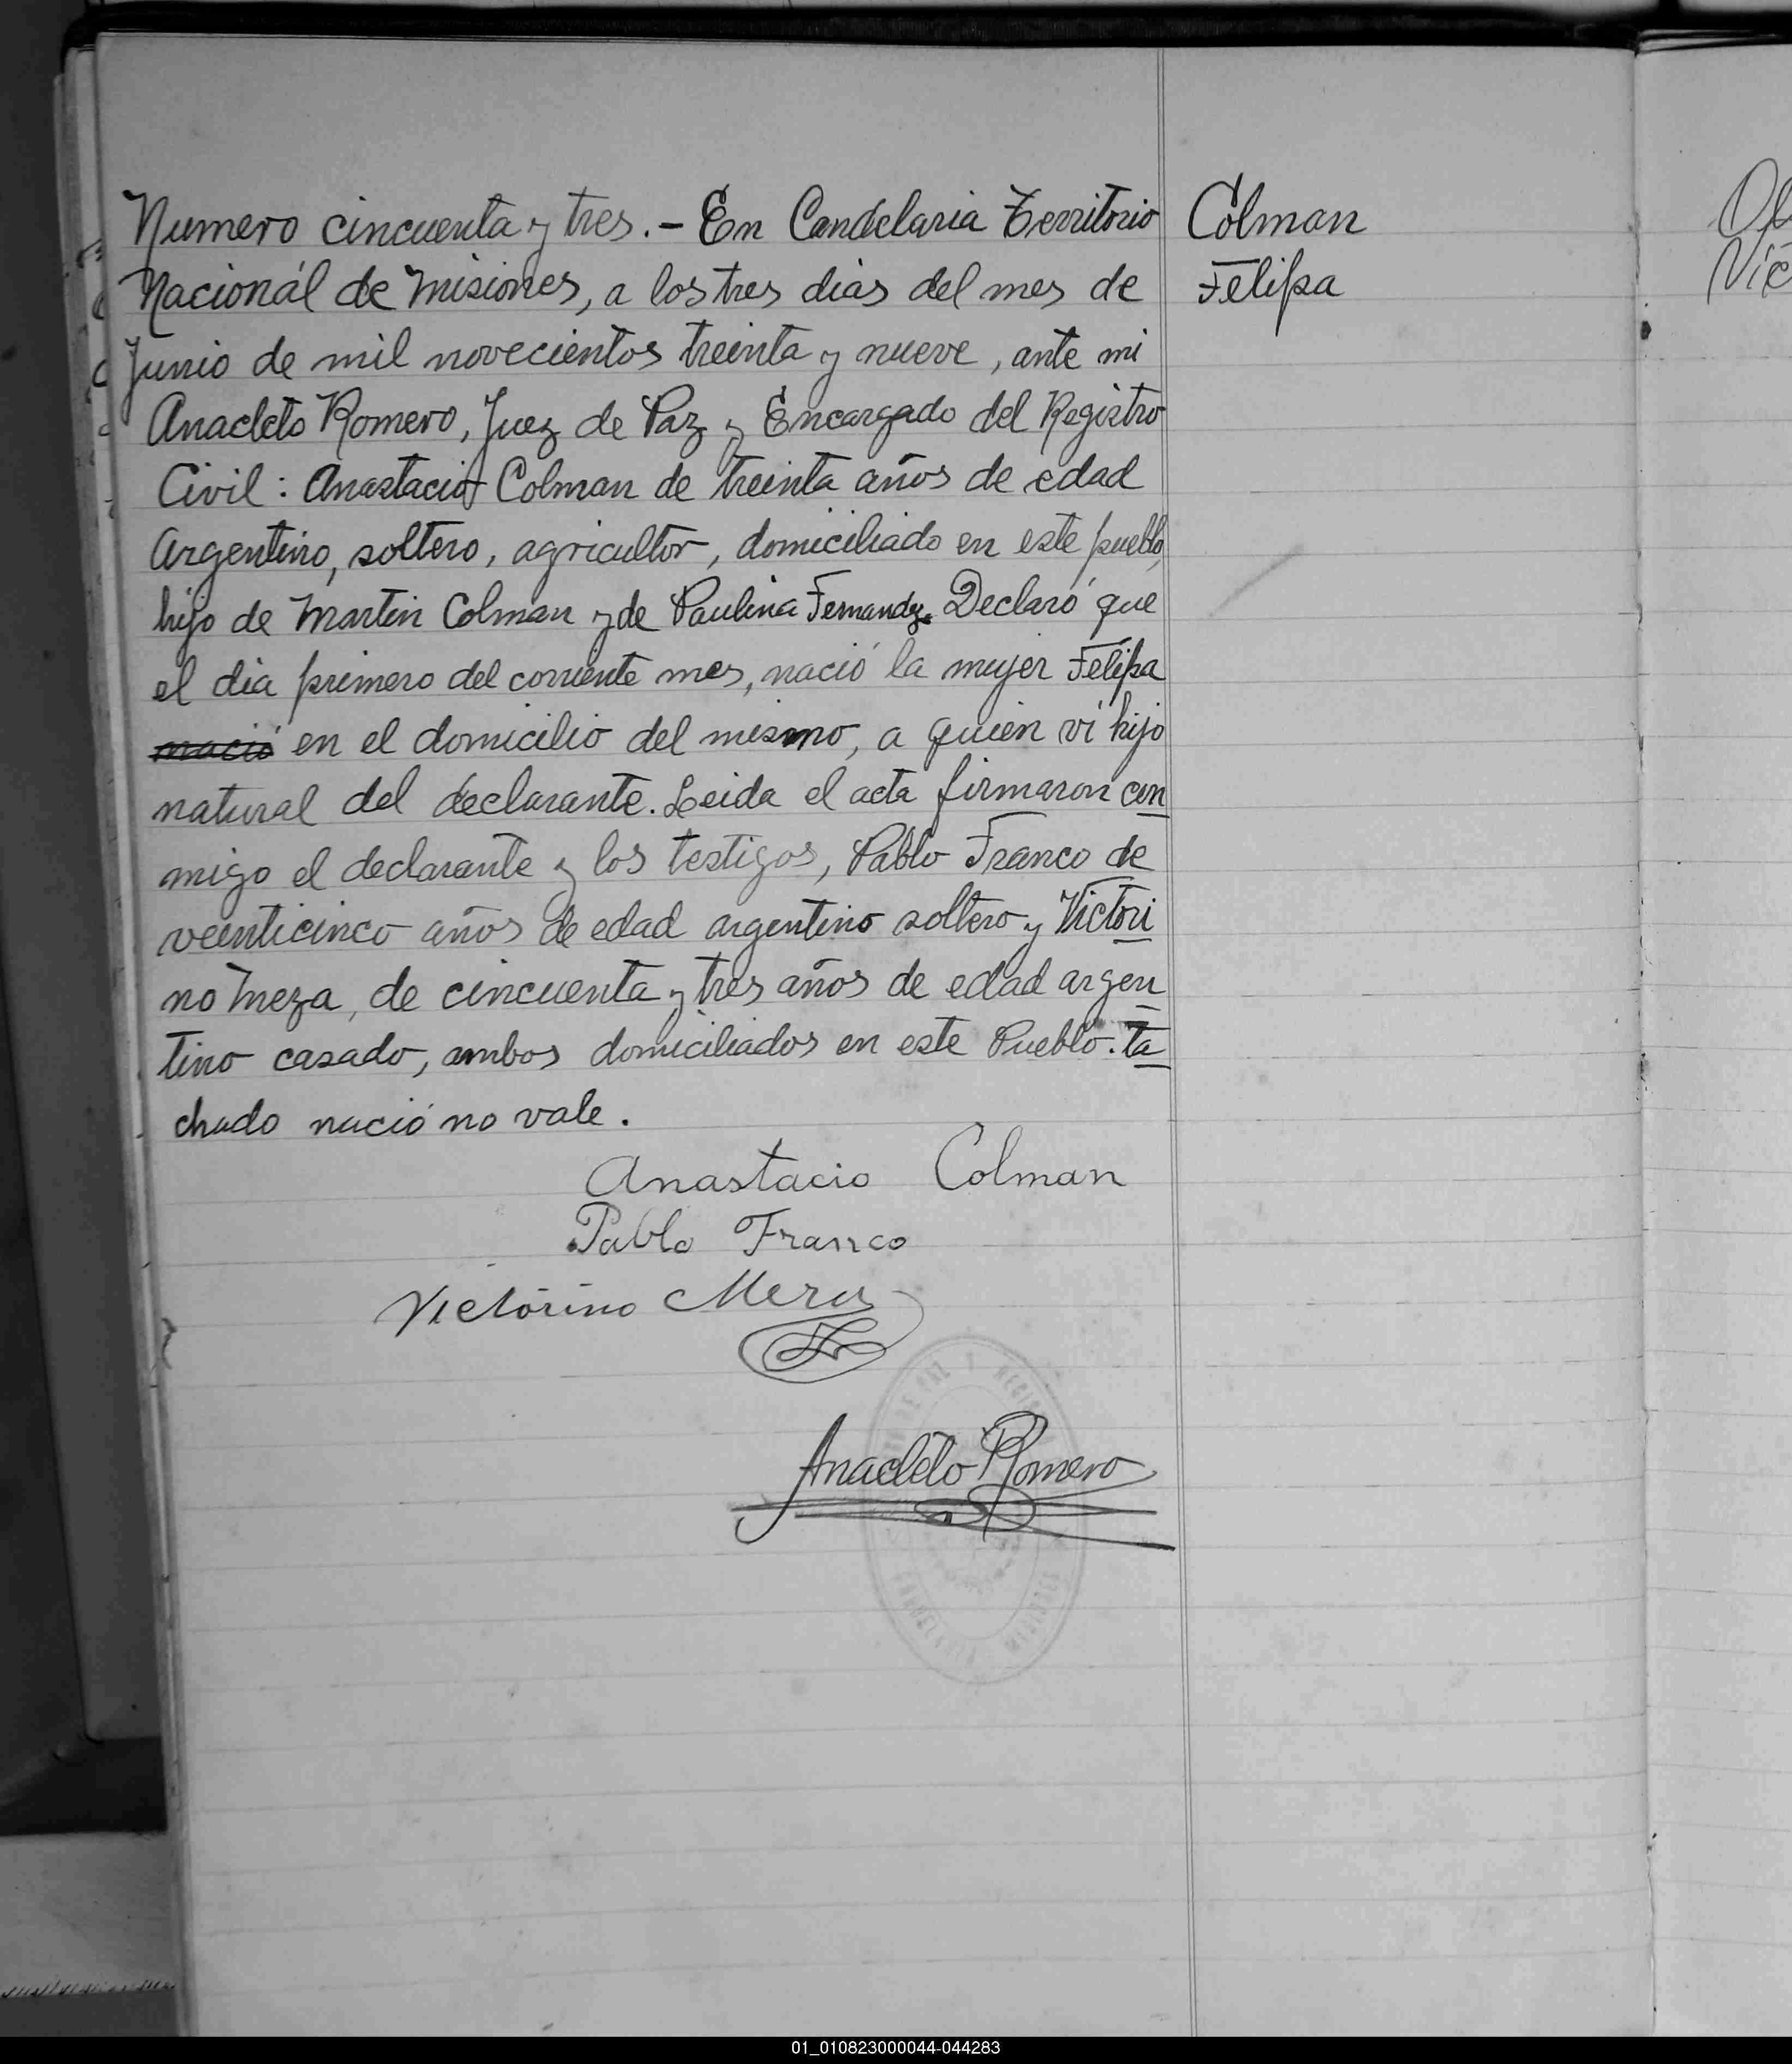 Numero cincuenta y tres.- En Candelaria Territorio
Nacionál de Misiones, a los tres dias del mes de
Junio de mil novecientos treinta y nueve, ante mi
Anacleto Romero, Juez de Paz y Encargado del Registro
Civil: Anastacio Colman de treinta años de edad
Argentino, soltero, agricultor, domiciliado en este pueblo,
hijo de Martin Colman y de Paulina Fernandez. Declaró que
el dia primero del corriente mes, nació la mujer Felipa
nació en el domicilio del mismo, a quien ví hijo
natural del declarante. Leida el acta firmaron con
migo el declarante y los testigos, Pablo Franco de
veinticinco años de edad argentino soltero y Victori
no Meza, de cincuenta y tres años de edad argen
tino casado, ambos domiciliados en este Pueblo. ta
chado nació no vale.
Anastacio Colman
Pablo Franco
Victorino Meza
Anacleto Romero
Colman
Felipa
CANDELARIA
01_010823000044-044283